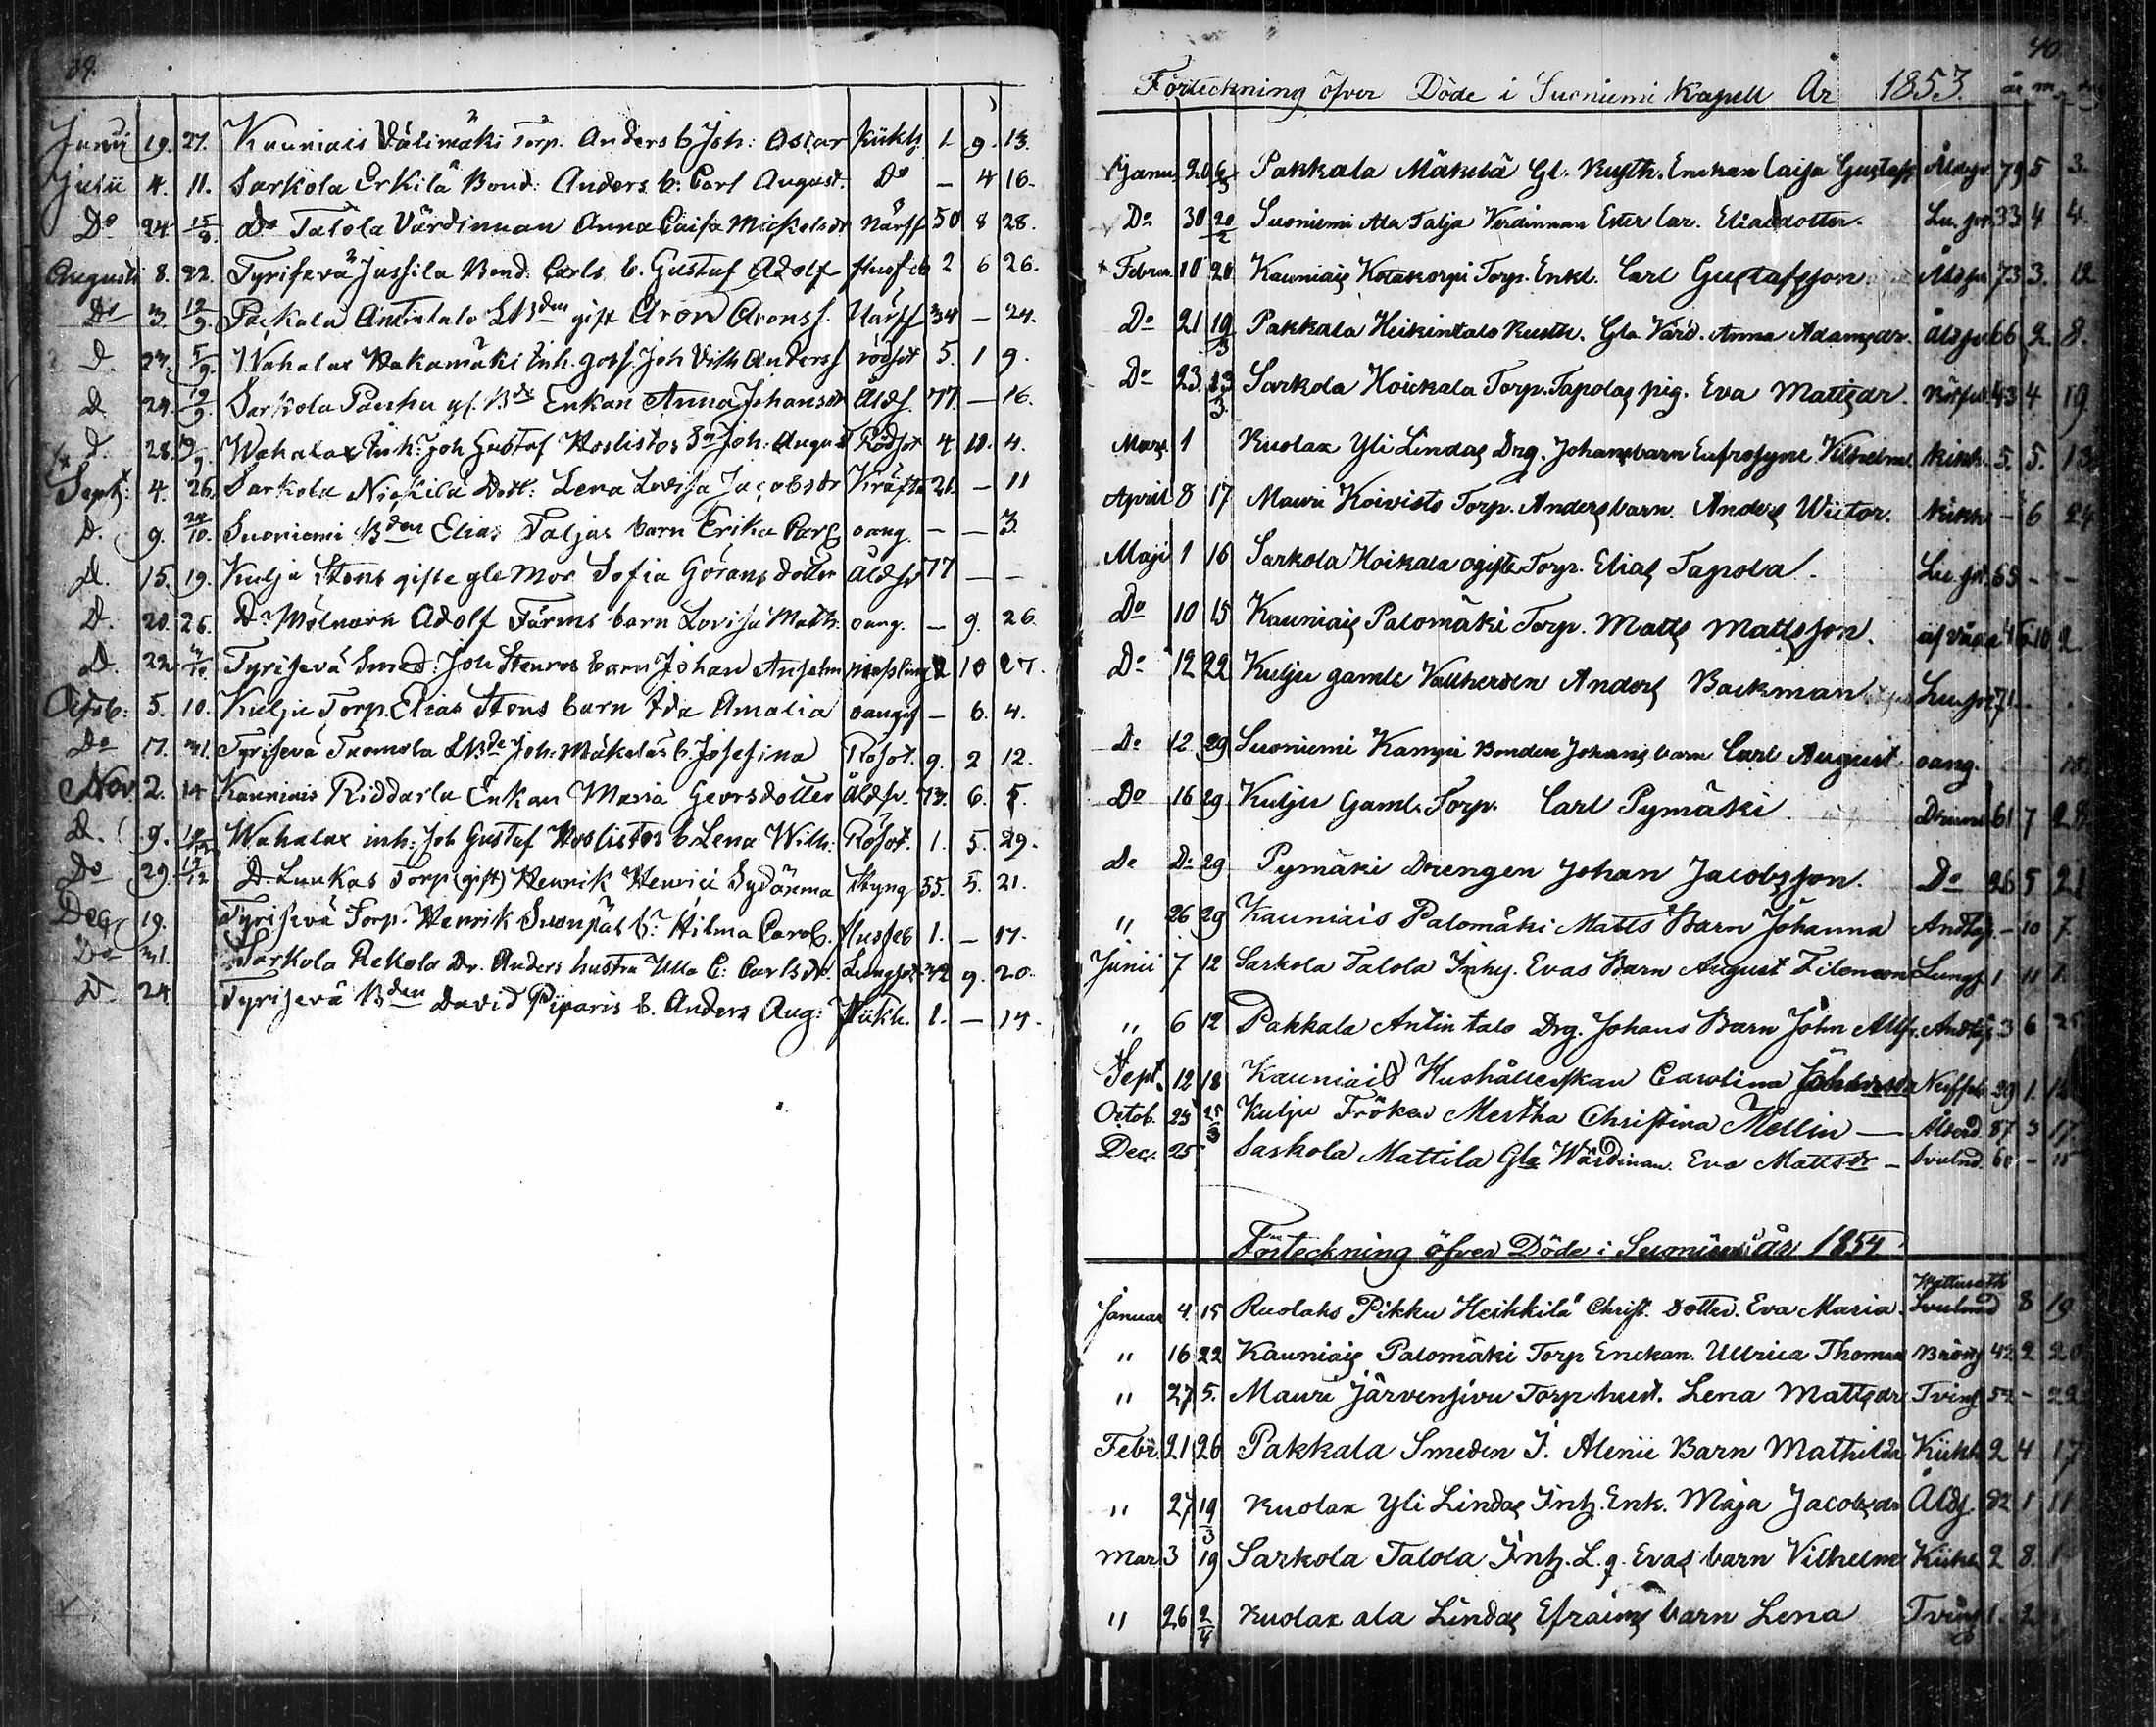 39.
Junii 19. 27. Kauniais Välimäki Torp. Anders b Joh: Oscar Kikh. 1 9. 13.
Julii 4. 11. Sarkola Erkilä Bond: Anders b: Carl August. Do — 4 16.
Do 24 15/8. do Talola Värdinnan Anna Caisa Mickelsdr Närff 50 8 28.
Augusti 8. 22. Tyrisevä Jussila Bond. Carls b. Gustaf Adolf 2 6 26.
Do 3. 12/9. Packala Antintalo gift Aron Aronss. Närff 34 — 24.
D. 27. 5/9. Wahalax Hakamäki Inh. goss. Joh Vilh Anderss rödsot 5. 1 9.
D. 29. 12/9. Sarkola Panhu gl. Enkan Anna Johansdr Ålds. 77. — 16.
D. 28. 19/9. Wahalax Inh: Joh Gustaf Koslistos Sn Joh: August Rödsot 4 10. 4.
Sept: 4. 26. Sarkola Nickilä Dott: Lena Lovisa Jacobsdr Kräfta 21. — 11
D. 9. 24/10. Suoniemi Bden Elias Taljas barn Erika Carol. oang. — — 3.
D. 15. 19. Kulju Stens gifte gle Mor Sofia Görans dotter Åldsr 77 — —
D. 20. 26. Do Mölnarn Adolf Färms barn Lovisa Math. oang. — 9. 26.
D. 22 Tyrisevä Smed: Joh Stenros barn Johan Anselm messling 2 10 27.
Octob: 5. 10. Kulju Torp. Elias Stens barn Ida Amalia oangif — 6. 4.
Do 17. 31. Tyrisevä Tuomola Joh: Mäkeläs b. Josefina Rösot. 9. 2 12.
Nov. 2. 14 Kauniais Riddarla Enkan Maria Georsdotter Åldsr. 73. 6. 5.
D. 9. Wahalax inh: Joh Gustaf Koslistos b Lena Wilh: Rösot. 1. 5. 29.
Do 29. 19/12 D. Lunkas Torp (gift) Henrik Henrici Sydänma Styng 55. 5. 21.
Dec 19. Tyrisevä Torp. Henrik Suonpäs b: Hilma Carol. 1. — 17.
Do 31. Sarkola Rekola Dr. Anders hustru Ulla C: Carlsdr. Lungsot 32 9. 20.
D. 24 Tyrisevä Bden David Piiparis b. Anders Aug: Kikh. 1. — 14.
40
Förteckning öfver Döde i Suoniemi Kapell År 1853. år m. dag
Janu. 20 6/3 Pakkala Mäkelä Gl. Rusth. Enckan Caisa Gustafs Åldsr. 79 5 3.
Do 30 20/2 Suoniemi Ala Talja Verdinnan Ester Car. Eliaedotter. Lu. sot. 33 4 4.
Febru. 10 20 Kauniais Kotakorpi Torp. Enkl. Carl Gustafsson. Åldsr 73 3. 12
Do 21 19/3 Pakkala Heikintalo Rusth. Gla Värd. Anna Adamsdr. Åldsr 66 2. 8.
Do 23. 13/3. Sarkola Hoickala Torp. Tapolas pig. Eva Matisdr. Rösot 43 4 19
Mars 1 Kuolax Yli Lindas Drg. Johans barn Eufrosyne Vilhelmi. Kikh. 5. 5. 13
April 8 17 Mauri Koivisto Torp. Anders barn. Anders Victor. Kikh — 6 24
Maji 1 16 Sarkola Hoikala ogifte Torp. Elias Tapola. Lu. sot. 65 - -
Do 10 15 Kauniais Palomäki Torp. Matts Mattsson. af våda 45 10 2
Do 12 22 Kulju gamle Vallherden Anders Backman Lunsot 71
Do 12 29 Suoniemi Kampi Bonden Johans barn Carl August oang.
Do 16 29 Kulju Gaml. Torp. Carl Pymäki. Drunk 61 7 28
Do Do 29 Pymäki Drengen Johan Jacobsson. Do 26 5 21
" 26 29 Kauniais Palomäki Matts Barn Johanna Andtäp. — 10 7.
Junii 7 12 Sarkola Talola Inhy. Evas Barn August Filemon Lungs. 1 11 1.
" 6 12 Pakkala Antin talo Drg. Johans Barn John Alfr. Andtäp. 3 6 25
Sept. 12 18 Kauniais Hushållerskan Carolina Johansdr 29 1.
Octob. 23 25/3 Kulju Fröken Mertha Christina Mellin — Ålderd. 87 3 17.
Dec. 25 Saskola Mattila Gla Wärdinan. Eva Mattsdr — Svulnd. 60 - 15
Förteckning öfver Döde i Suoniemi år 1854
Januar 4. 15 Ruolahs Pikku Heikkilä Christ. Dotter. Eva Maria. Svulnad 8 19
" 16 22 Kauniais Palomäki Torp Enckan. Ullrica Thomae Bröstj 42 2 20
" 27 5. Mauri Järvensivu Torp hust. Lena Mattsdr Tvins 52 - 22
Febr. 21 26 Pakkala Smeden J. Alenii Barn Mathilda Kikh. 2 4 17
" 27 19/3 Kuolax Yli Lindas Inh. Enk. Maja Jacobsdr Åldj. 82 1 11
Mar. 3 19 Sarkola Talola Inh. L. g. Evas barn Vilhelm Kikh. 2 8. 1
" 26 2/4 Kuolax ala Lindas Efraims barn Lena Tvins 1. 2